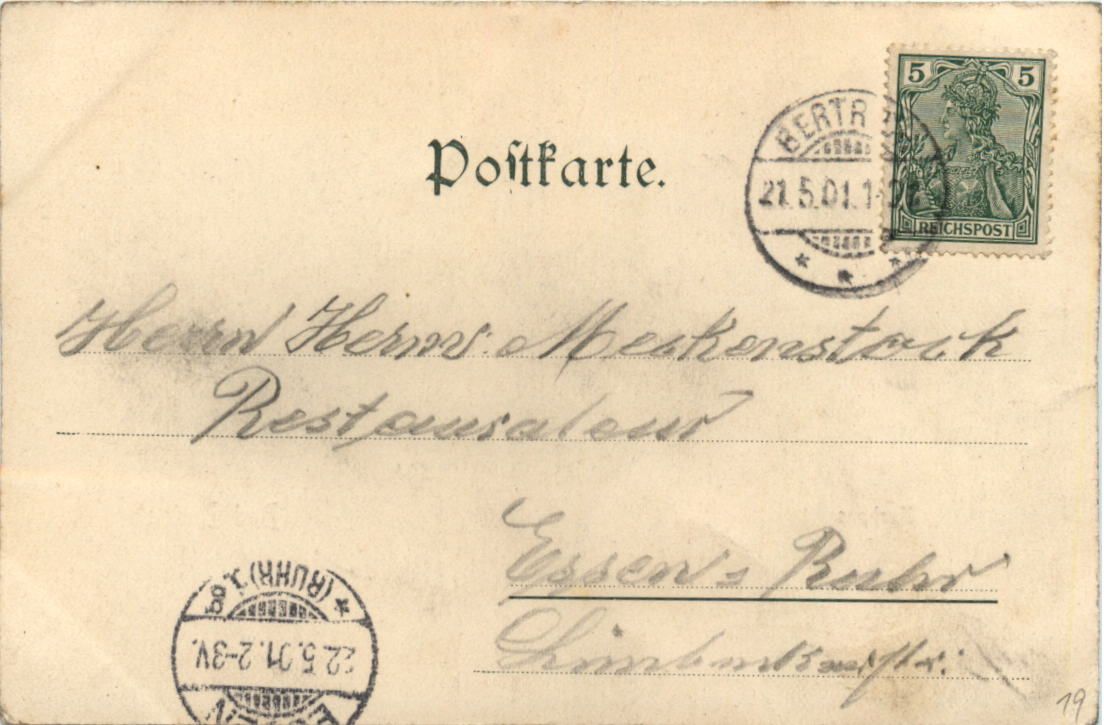 5 5
REICHSPOST
BERTR
21.5.01.1
Postkarte.
Herrn Herm. Meckenstock
Restaurateur
Essen a Ruhr
* (RUHR) 1. *
22.5.01.2-3V.
19